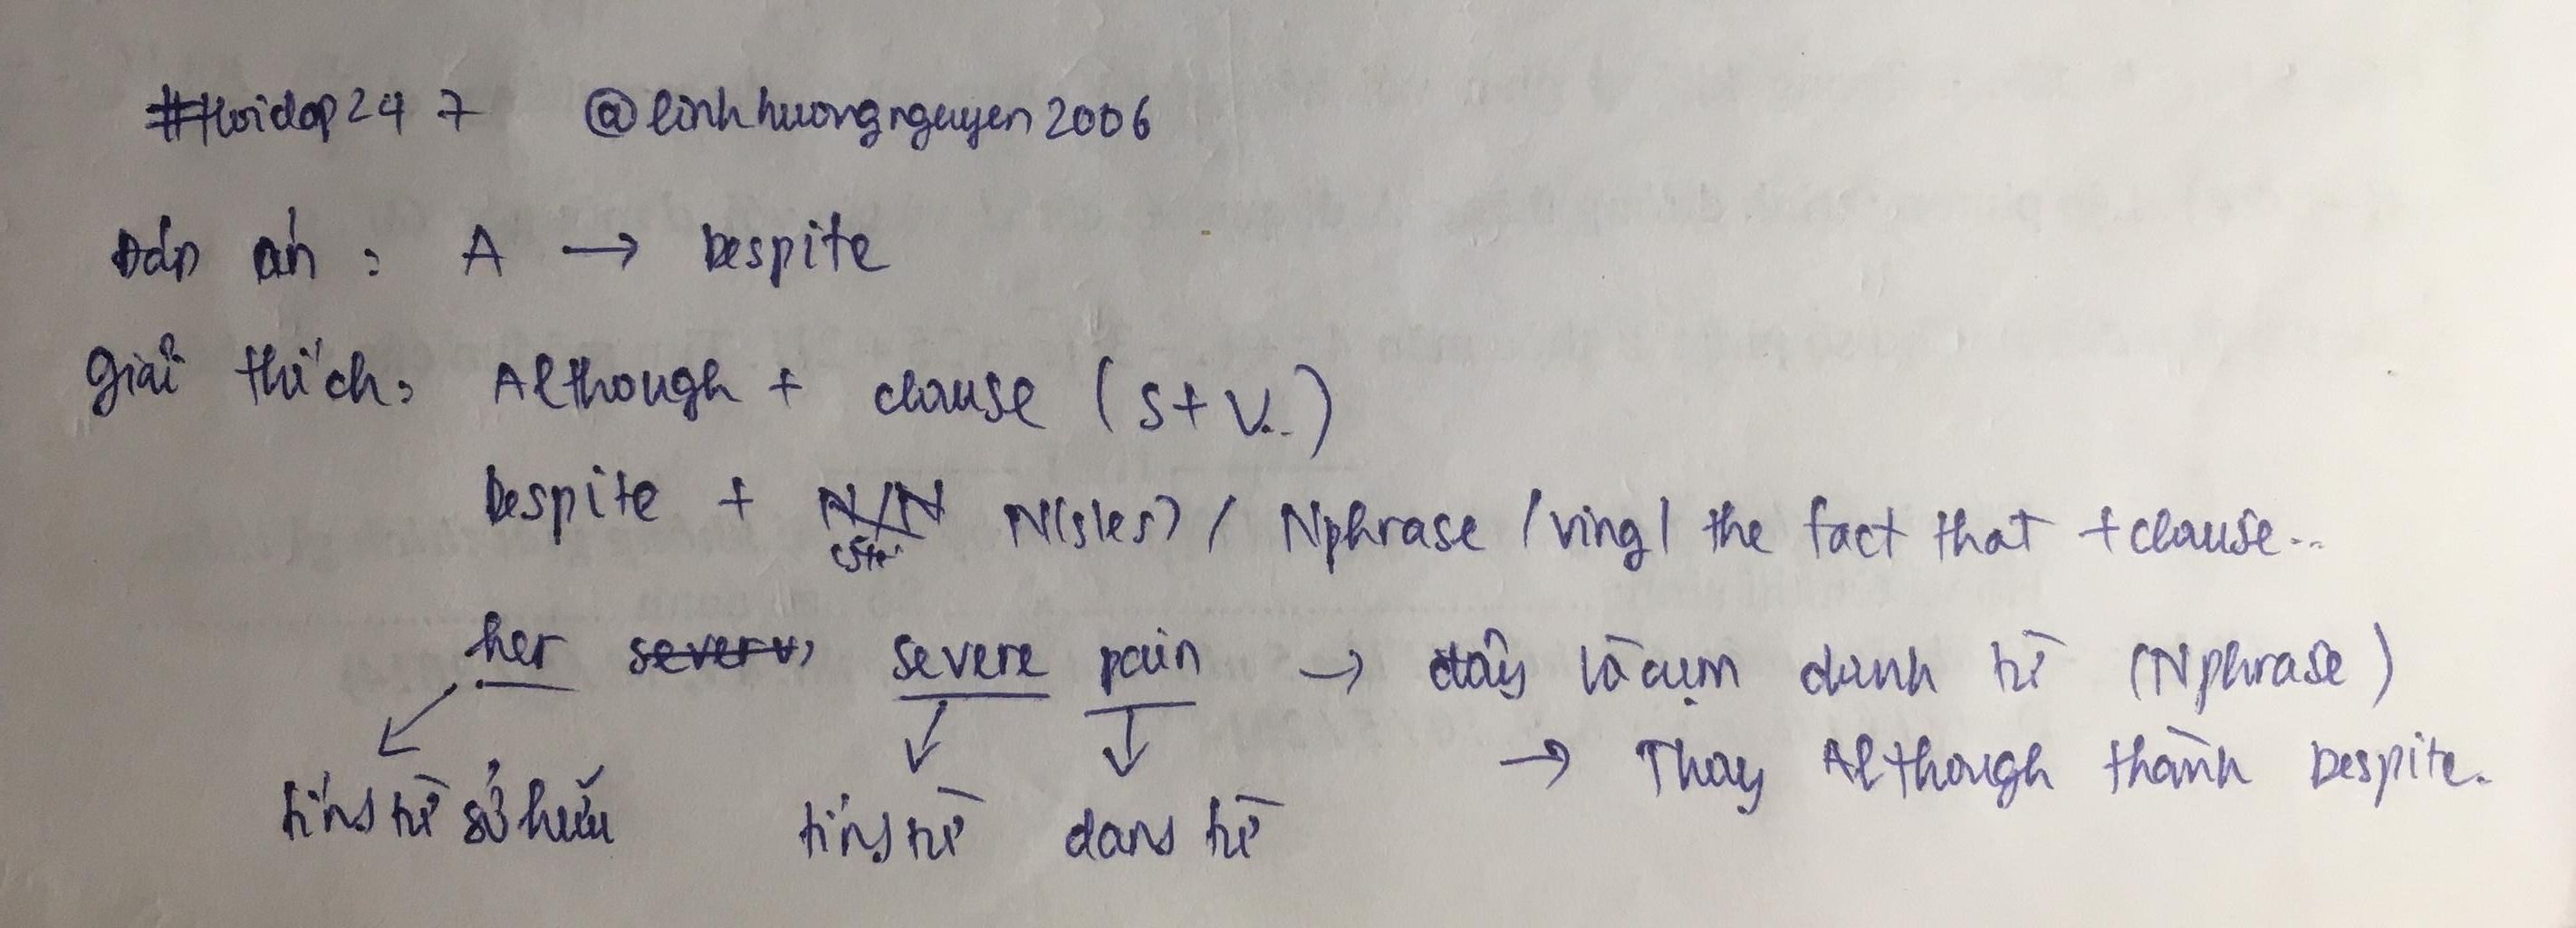 #Hoidap247 @linhhuongnguyen2006
Đáp án : A → Despite
Giải thích: Although + clause (S+V..)
Despite + N/N N(s/es) / Nphrase / Ving / the fact that + clause...
her severe pain → đây là cụm danh từ (Nphrase)
→ Thay Although thành Despite.
tính từ sở hữu tính từ danh từ